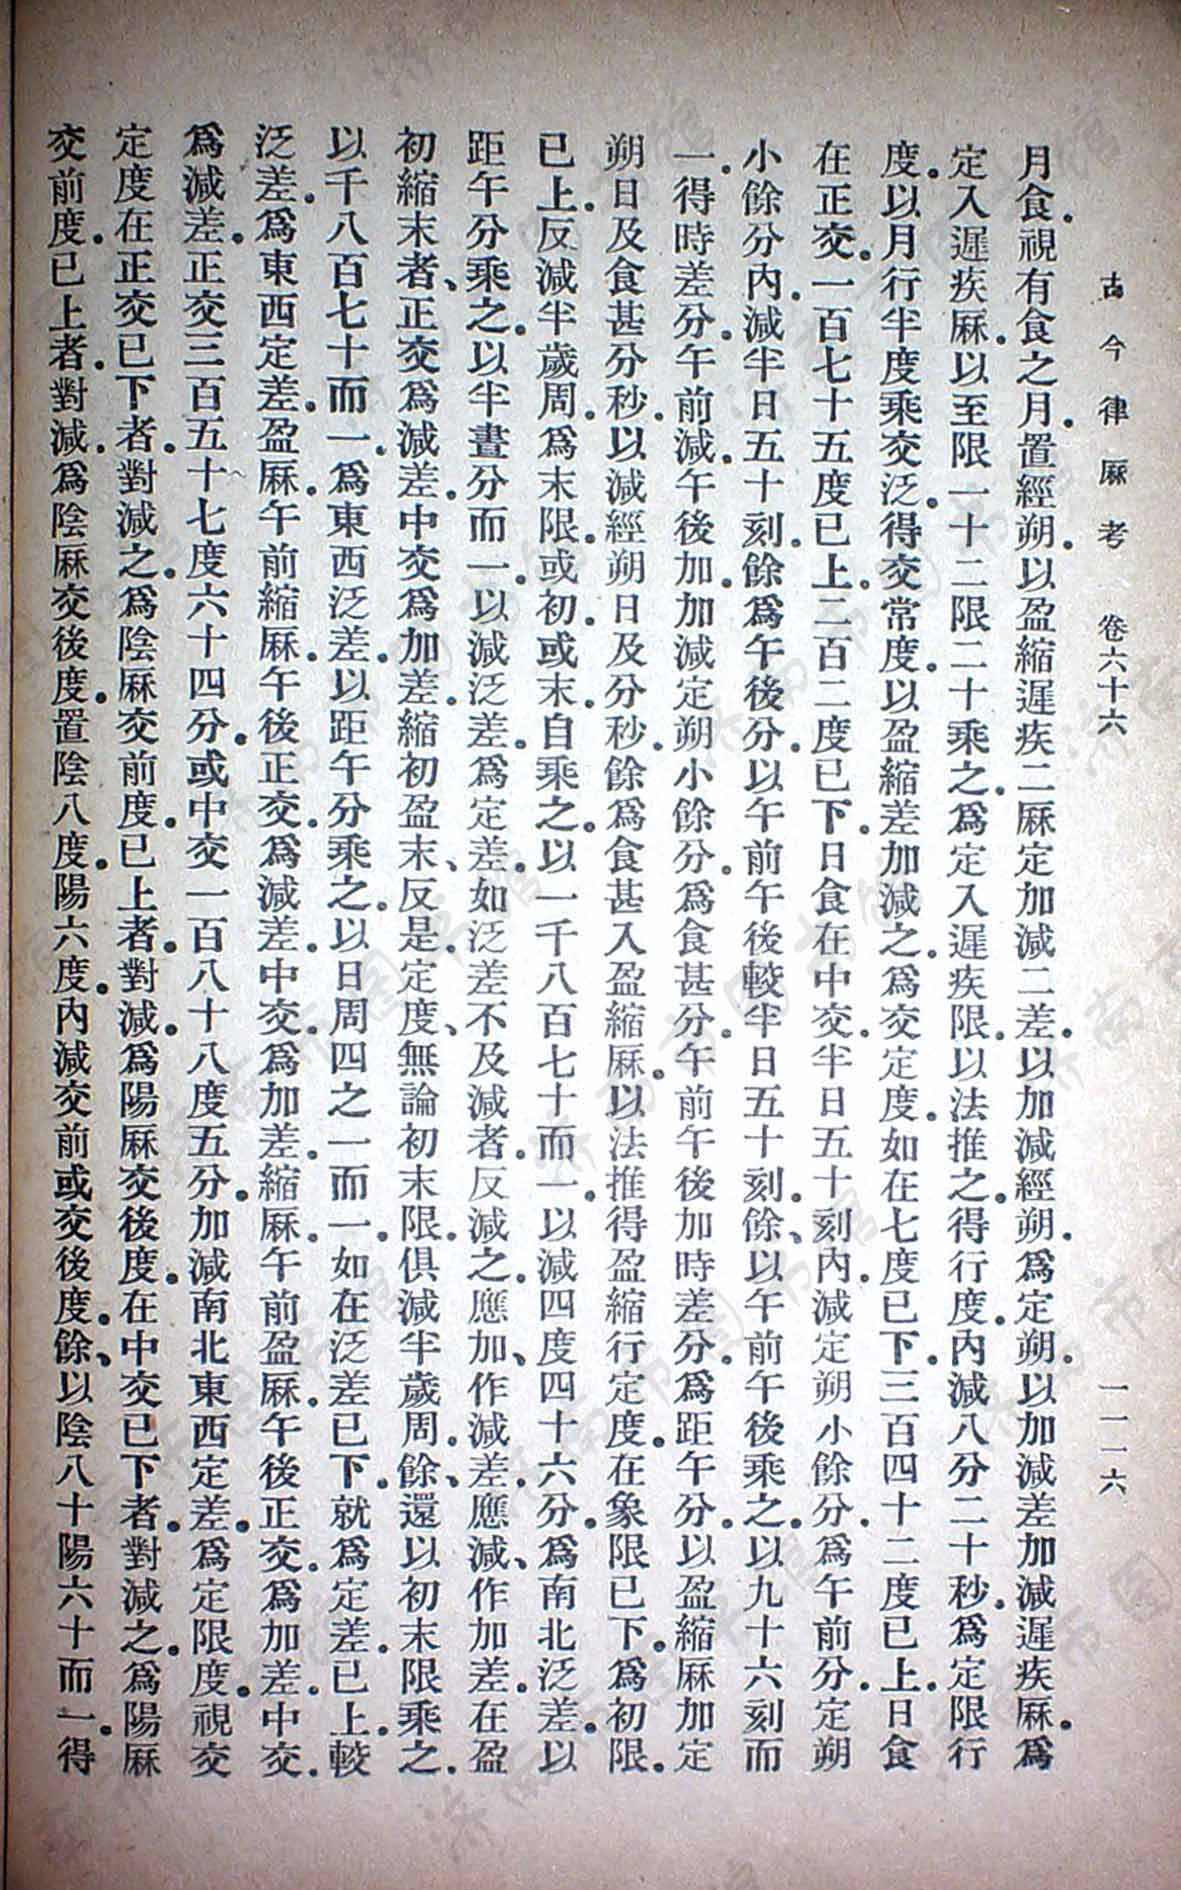 古今律厤考　卷六十六　一一一六
月食。視有食之月。置經朔。以盈縮遲疾二厤定加減二差。以加減經朔。爲定朔。以加減差加減遲疾厤。爲
定入遲疾厤。以至限一十二限二十乘之。爲定入遲疾限。以法推之。得行度。內減八分二十秒。爲定限行
度。以月行半度乘交泛。得交常度。以盈縮差加減之。爲交定度。如在七度已下。三百四十二度已上。日食
在正交。一百七十五度已上。二百二度已下。日食在中交。半日五十刻內。減定朔小餘分。爲午前分。定朔
小餘分內。減半日五十刻。餘爲午後分。以午前午後較半日五十刻。餘、以午前午後乘之。以九十六刻而
一。得時差分。午前減。午後加。加減定朔小餘分。爲食甚分。午前午後加時差分。爲距午分。以盈縮厤加定
朔日及食甚分秒。以減經朔日及分秒。餘爲食甚入盈縮厤。以法推得盈縮行定度。在象限已下。爲初限。
已上。反減半歲周。爲末限。或初。或末。自乘之。以一千八百七十而一。以減四度四十六分。爲南北泛差。以
距午分乘之。以半晝分而一。以減泛差。爲定差。如泛差不及減者。反減之。應加、作減差。應減、作加差。在盈
初縮末者、正交爲減差。中交爲加差。縮初盈末、反是。定度、無論初末限。俱減半歲周。餘、還以初末限乘之。
以千八百七十而一。爲東西泛差。以距午分乘之。以日周四之一而一。如在泛差已下。就爲定差。已上。較
泛差。爲東西定差。盈厤。午前縮厤。午後正交。爲減差。中交。爲加差。縮厤。午前盈厤。午後正交。爲加差。中交。
爲減差。正交三百五十七度六十四分。或中交一百八十八度五分。加減南北東西定差。爲定限度。視交
定度在正交已下者。對減之。爲陰厤交前度。已上者。對減。爲陽厤交後度。在中交已下者。對減之。爲陽厤
交前度。已上者。對減。爲陰厤交後度。置陰八度。陽六度。內減交前或交後度。餘、以陰八十陽六十而一。得